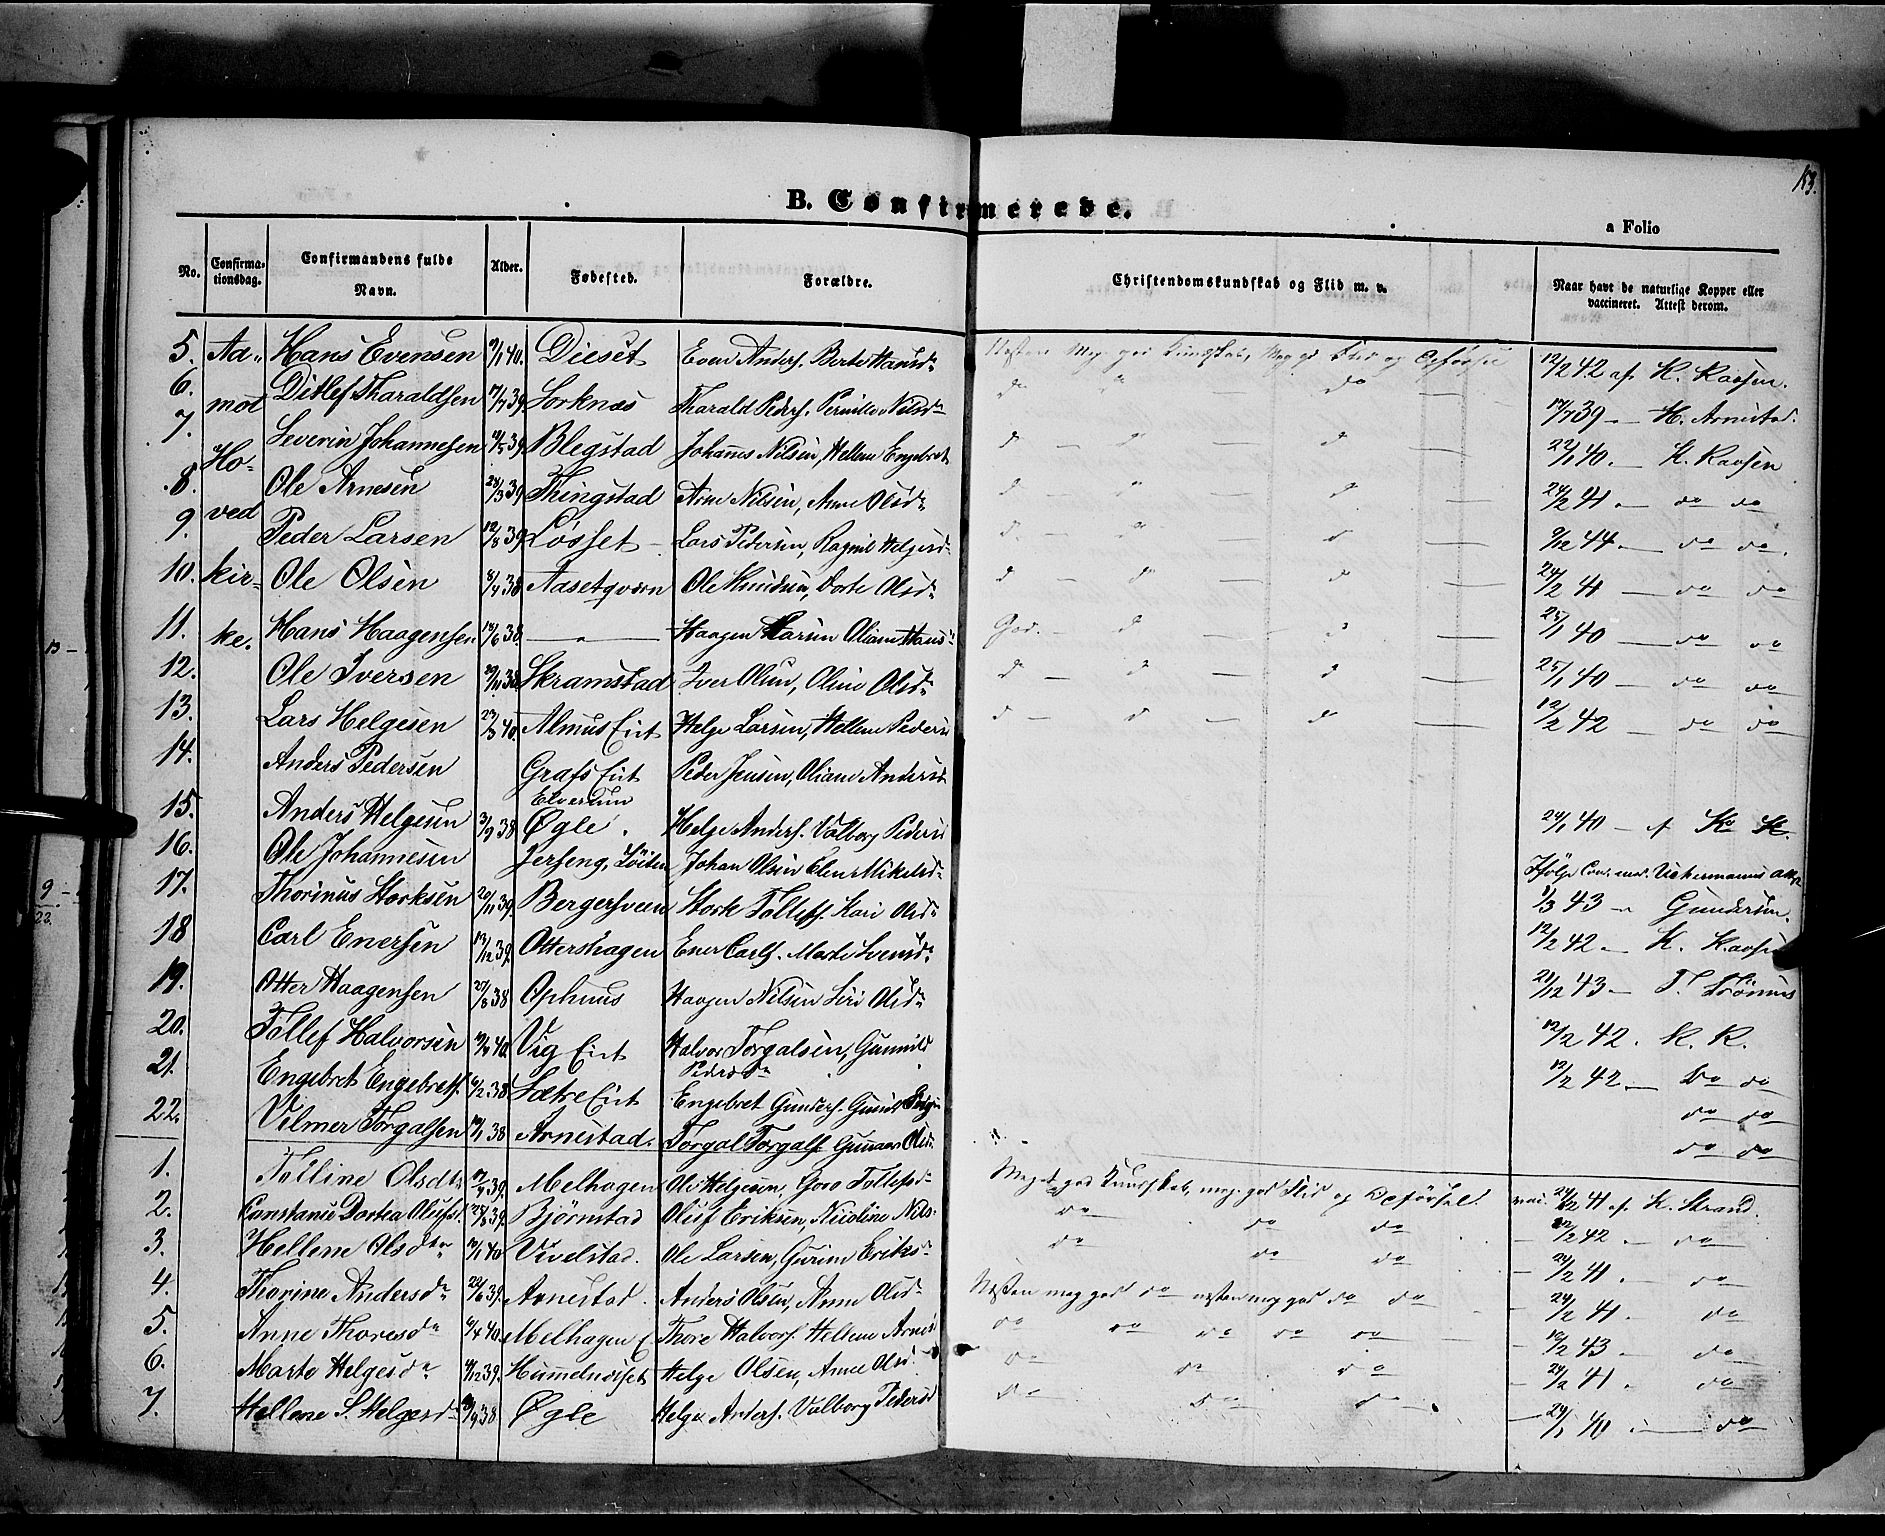 183.
B. Confirmerede.
a Folio
No. Confirmationsdag. Confirmandens fulde Navn. Alder. Fødested. Forældre. Christendomskundskab og Flid m. v. Naar havt de naturlige Kopper eller vaccineret. Attest derom.
5. Aa- Hans Evensen 9/1 40. Dieset Even Anders. Berte Hansd. Næsten Meg. god Kundskab, Meg. gd Flid og Opførsel 12/2 42 af K. Kaasen.
6. mot Ditlef Tharaldsen 17/7 39 Sorknæs Tharald Peders. Pernille Nilsd 17/7 39 — H. Arnestad.
7. Severin Johannesen 39 Blegstad Johannes Nilsen, Hellene Engebret 22/1 40. — K. Kaasen
8. Ho- Ole Arnesen 24/3 39 Thingstad Arne Nilsen, Anne Olsd. 24/2 41 — do do
9. ved Peder Larsen 12/8 39 Løsset Lars Pedersen, Ragnil Helgesd. 9/12 44 — do do.
10. kir- Ole Olsen 8/4 38 Aasetqværn Ole Knudsen, Dorte Olsd. 24/2 41 — do do
11. ke. Hans Haagensen 38. — " — Haagen Larsen Oliane Hans God. 25/1 40 — do do
12. Ole Iversen 38 Skramstad Iver Olsen, Oline Olsd. 25/1 40 — do do
13. Lars Helgesen 40. Almus Eiet Helge Larsen, Hellene Pedersd 12/2 42 — do do
14. Anders Pedersen Grafs Eiet Elverum Peder Jensen, Oliane Andersd
15. Anders Helgesen 3/9 38 Øgle. Helge Anders. Valborg Pedersd 24/1 40 — af K
16. Ole Johannesen Jerseng, Løiten Johan Olsen Elen Mikelsd. Ifølge
17. Thorinus Storksen 20/11 39. Bergersveen Stork Tollefs. Kari Olsd. 1/3 43 — Gundersen.
18 Carl Enersen 13/12 39. Ottershagen Ener Carls. Marte Svensd. 12/2 42 — K. Kaasen
19. Otter Haagensen 38 Ophuus Haagen Nilsen Siri Olsd. 21/12 43 — T. Strømnes
20. Tollef Halvorsen 40. Vig Eiet Halvor Torgalsen, Gunnild Pedersd 12/2 42. K. K.
21. Engebret Engebrets. 6/2 38. Sætre Eiet Engebret Gunders. 12/2 42 — Do do
do do
22. Vilmer Torgalsen 38 Arnestad. Torgal Torgals do do
1. Tolline Olsdt 39. Melhagen Ole Helgesen, Goro Tollefsd. Meget god Kundskab, meg. god Flid og Opførsel. vac. 24/2 41 af K. Strand.
2. Constance Dortea Olufsd. 39. Bjørnstad Oluf Eriksen, Nicoline Nils. do do do 12/2 42 — do
3. Hellene Olsdtr 40 Vivelstad. Ole Larsen, Gurine Eriks. do do do 24/2 41 — do
4. Thorine Andersd. 22/6 39. Arnestad. Anders Olsen, Anne Olsd. Næsten meg god do næsten meg god do do 24/2 41. do
5. Anne Thoresd. 6/4 40. Melhagen E Thore Halvors. Hellene Arnesd do do do do do 12/2 43 — do
6. Marte Helgesd. 39. Hummelnæset Helge Olsen, Anne Olsd. do do do 24/2 41. do
7. Hellene S. Helgesd. 38. Øgle Helge Anders. Valborg Pedersd do do do 24/1 40 — do